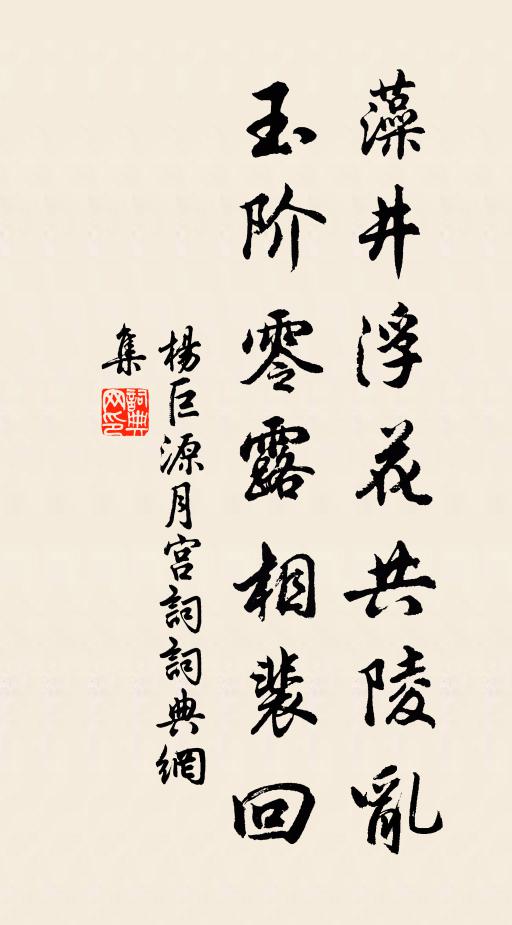 藻井浮花共陵亂
玉阶零露相裴回
楊巨源月宫詞詞典網
集
詞典网印